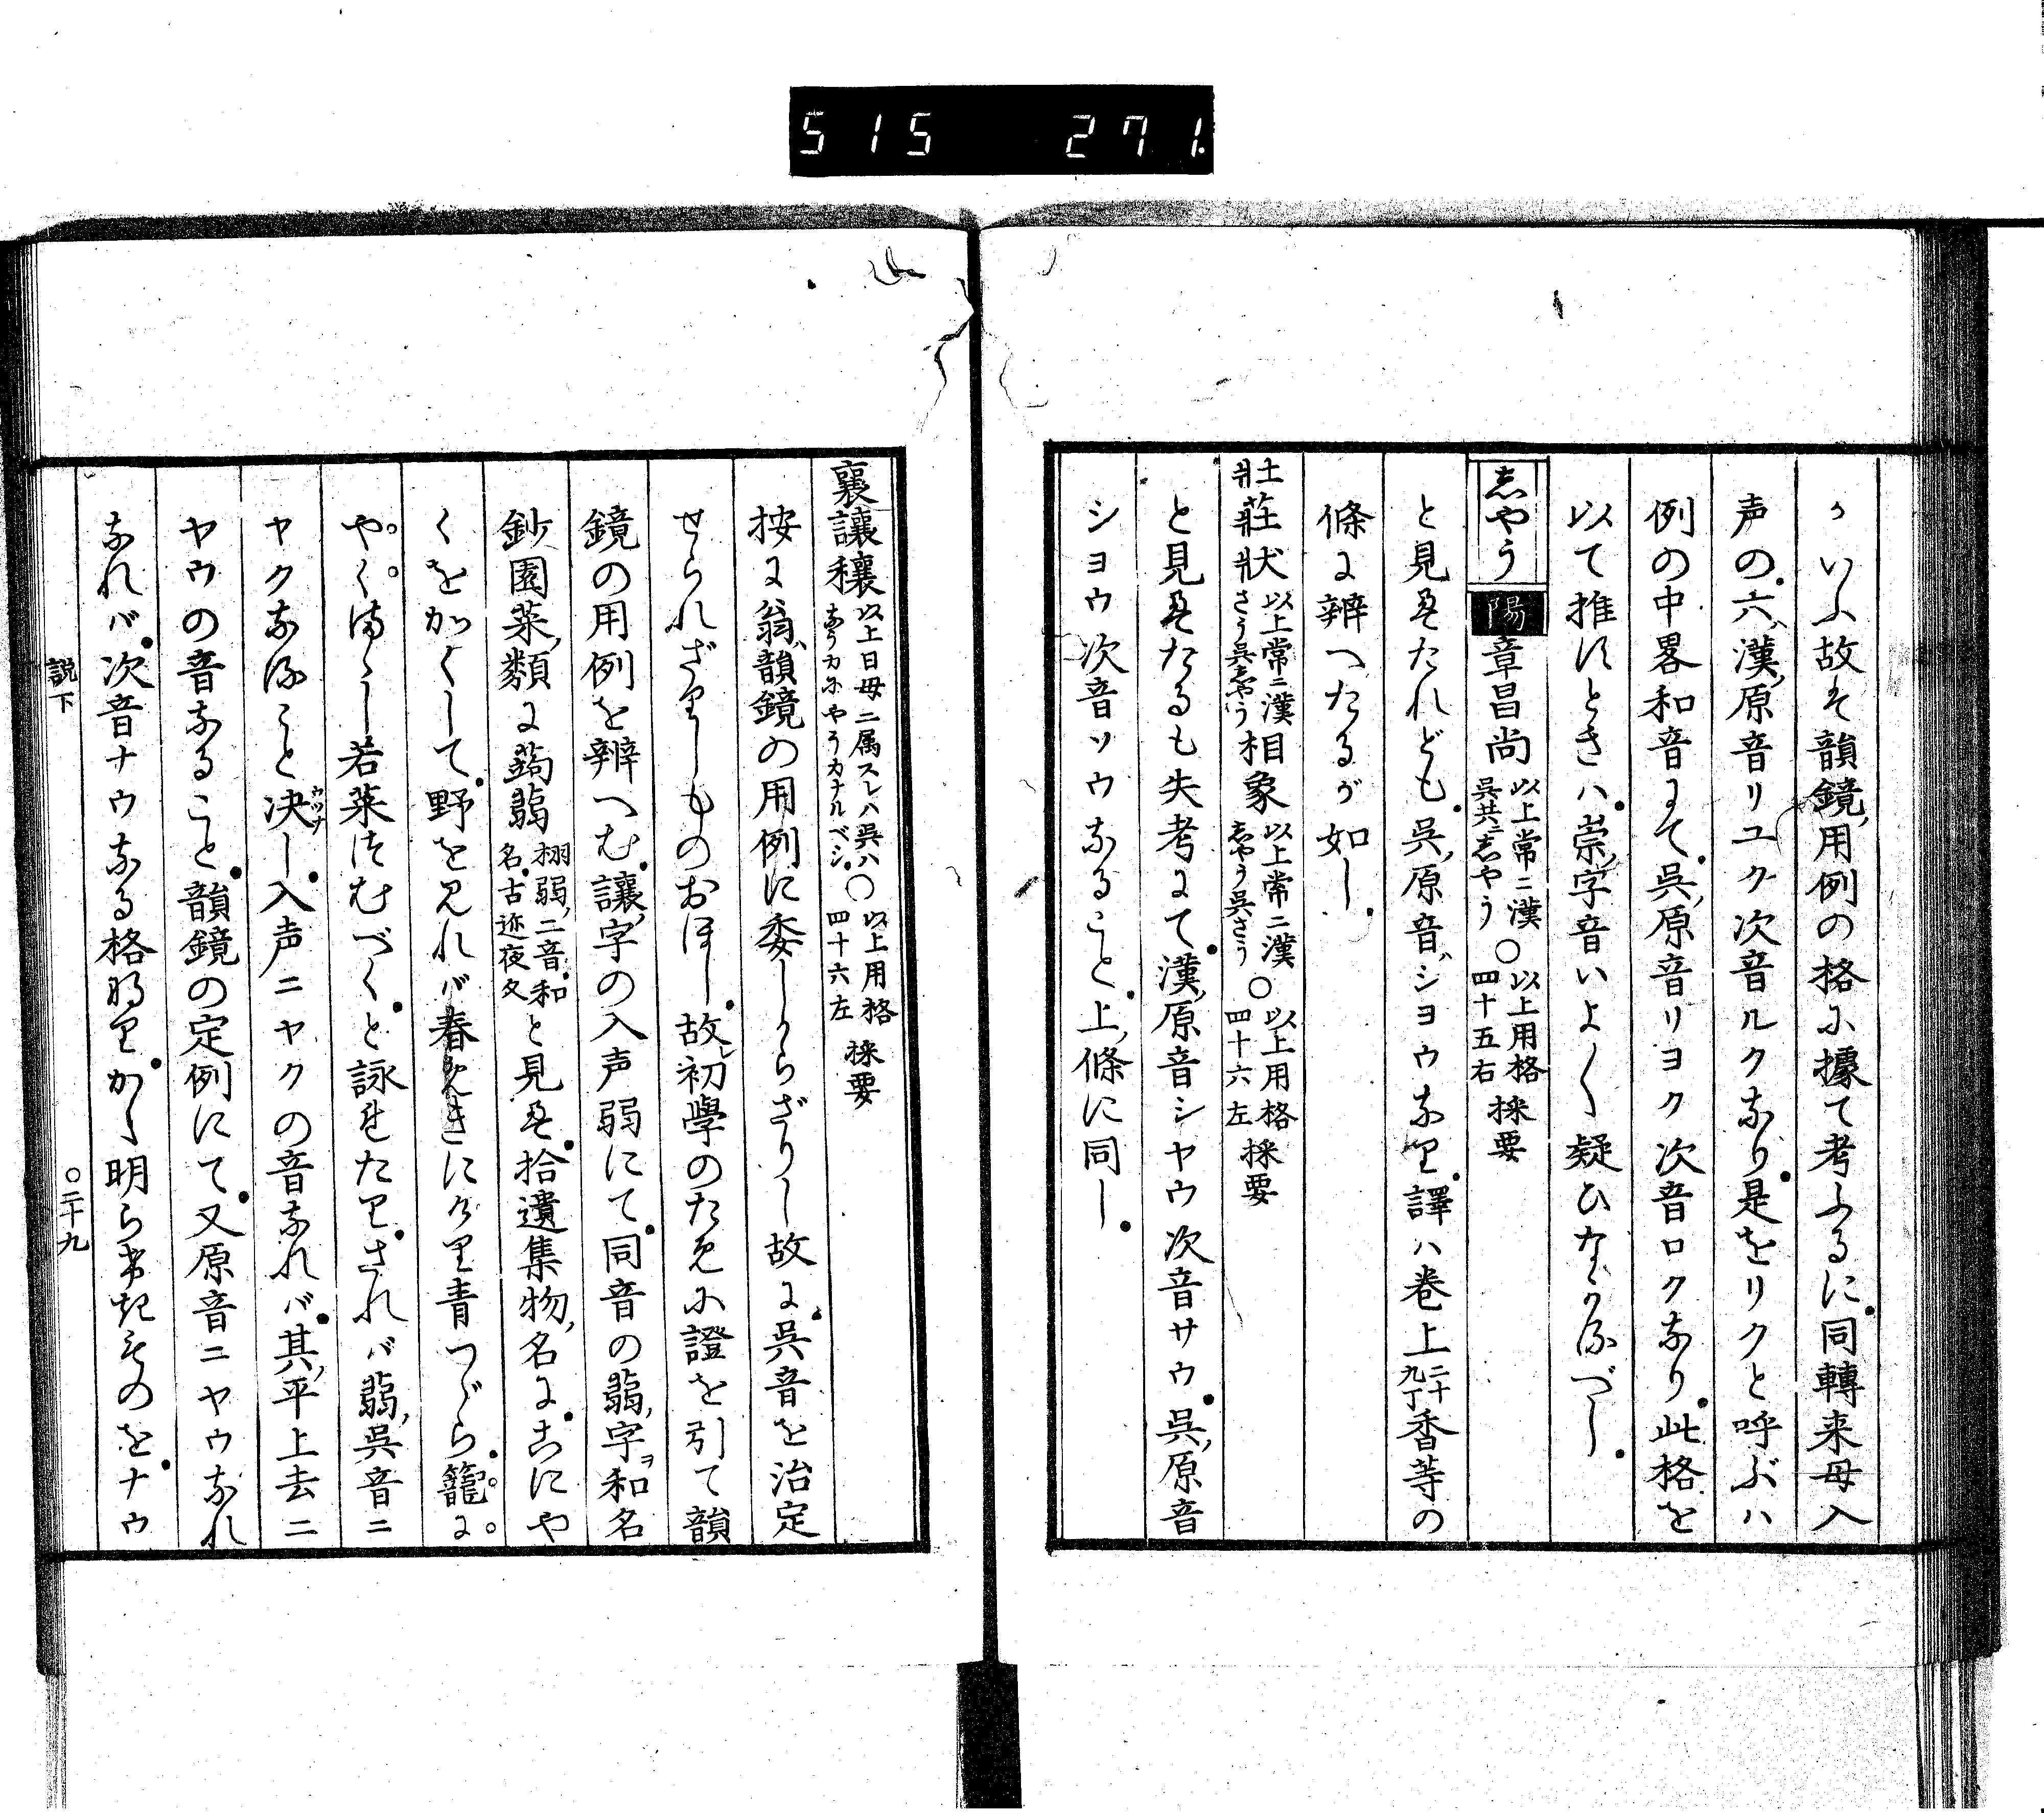 515 271
ういふ故そ韻鏡用例の格に據て考ふるに同轉来母入
声の六漢原音リユク次音ルクなり是をリクと呼ぶハ
例の中畧和音まて呉原音リヨク次音ロクなり此格を
以て推すときハ崇字音いよ〱疑ひなかるべし
志やう 陽 章昌尚 以上常ニ漢呉共ニ志やう ○ 以上用格四十五右 採要
と見えたれども呉原音ジヨウなり譯ハ巻上二十九丁香等の
條に辨へたるが如し
壯莊狀 以上常ニ漢さう呉志やう 相象 以上常ニ漢志やう呉さう ○ 以上用格四十六左 採要
と見えたるも失考にて漢原音シヤウ次音サウ呉原音
シヨウ次音ソウなること上條に同し
襄讓穰 以上日母ニ属スレハ呉ハなうカにやうカナルベシ ○ 以上用格四十六左 採要
按に翁韻鏡の用例に委しからざりし故に呉音を治定
せられざりしものおほし故初學のために證を引て韻
鏡の用例を辨へむ讓字の入声弱にて同音の蒻字ヲ和名
鈔園菜類に蒟蒻 栩弱二音和名古迩夜久 と見え拾遺集物名にこにや
くをかくして野を見れバ春めきにけり青つゞら籠に
やくまゝし若菜つむべくと詠れたりされバ蒻呉音ニ
ヤクなること决ウツナし入声ニヤクの音なれバ其平上去ニ
ヤウの音なること韻鏡の定例にて又原音ニヤウなれ
なれバ次音ナウなる格なりかく明らかなるものをナウ
説下
○二十九